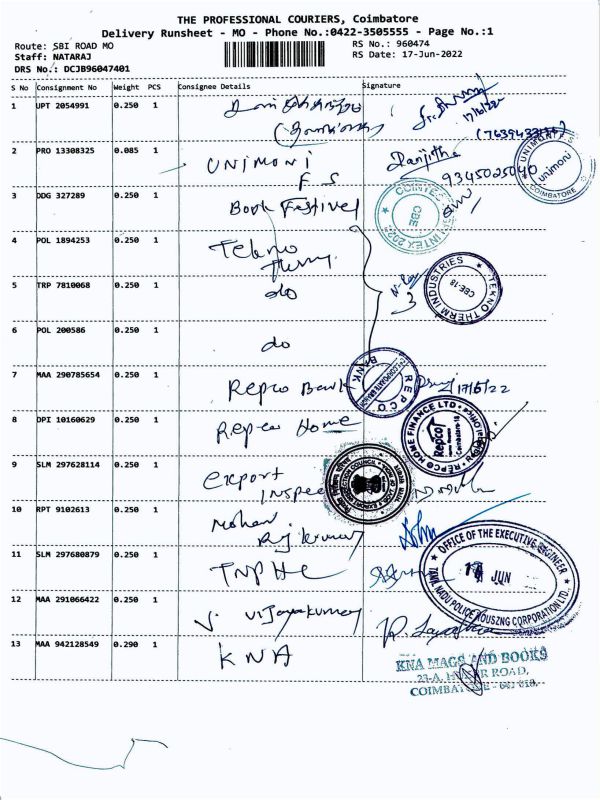 THE PROFESSIONAL COURIERS, Coimbatore
Delivery Runsheet - MO - Phone No.:0422-3505555 - Page No.:1
Route: SBI ROAD MO
Staff: NATARAJ
DRS No.: DCJB96047401
RS No.: 960474
RS Date: 17-Jun-2022
S No Consignment No Weight PCS Consignee Details Signature
1 UPT 2054991 0.250 1
17/6/22
2 PRO 13308325 0.085 1 UNIMONI
F S
Ranjitha
9345025040
UNIMONI
COIMBATORE
3 DDG 327289 0.250 1 Book Festival
CBE
4 POL 1894253 0.250 1 Tekno
Therm.
TEKNO THERM INDUSTRIES
CBE-18
5 TRP 7810068 0.250 1 do
3
6 POL 200586 0.250 1 do
7 MAA 290785654 0.250 1 Repco Bank
REPCO BANK
17/6/22
8 DPI 10160629 0.250 1 Repco Home
REPCO HOME FINANCE LTD.
Repco
Coimbatore-18
9 SLM 297628114 0.250 1 Export
Inspec
10 RPT 9102613 0.250 1 Mohan
Rajkumar
11 SLM 297680879 0.250 1 TNPHC
OFFICE OF THE EXECUTIVE ENGINEER
JUN
TAMIL NADU POLICE HOUSING CORPORATION LTD.
12 MAA 291066422 0.250 1 J. Vijayakumar
13 MAA 942128549 0.290 1 KNA
KNA MAGS AND BOOKS